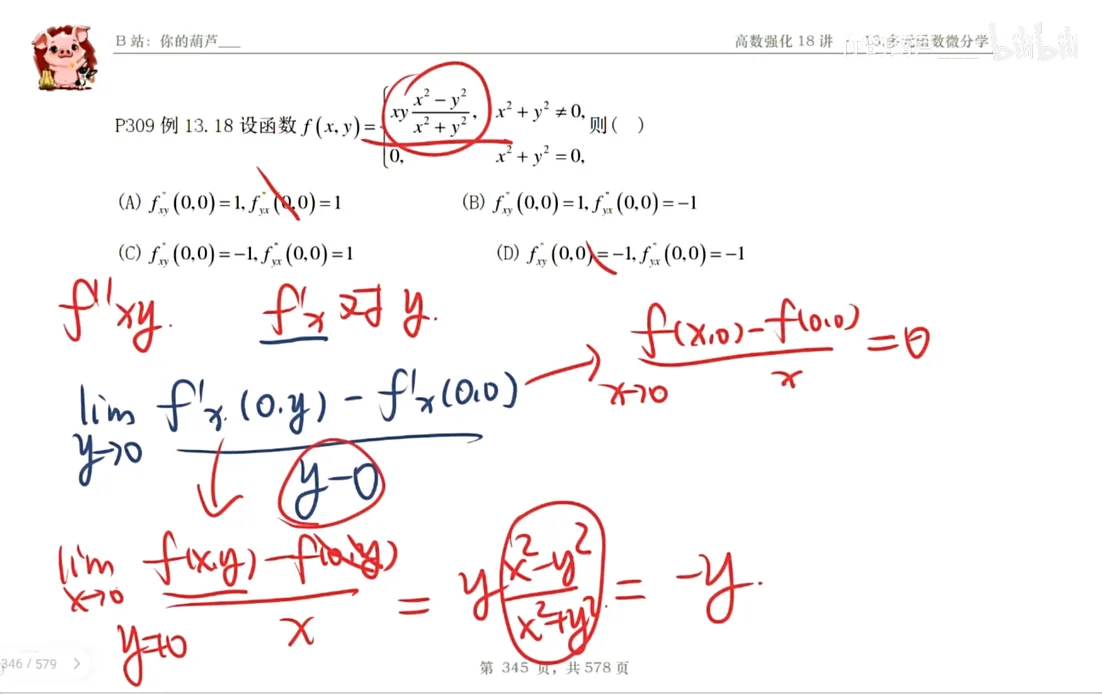 B 站：你的葫芦___
高数强化 18 讲 13.多元函数微分学
bilibili
P309 例 13.18 设函数 f(x,y)= { xy (x² − y²)/(x² + y²), x² + y² ≠ 0, 则( )
0, x² + y² = 0,
(A) f″xy(0,0)=1, f″yx(0,0)=1
(B) f″xy(0,0)=1, f″yx(0,0)=−1
(C) f″xy(0,0)=−1, f″yx(0,0)=1
(D) f″xy(0,0)=−1, f″yx(0,0)=−1
f″xy. f′x 对 y.
lim y→0 (f′x(0,y) − f′x(0,0))/(y−0) → x→0 (f(x,0) − f(0,0))/x = 0
lim x→0 y≠0 (f(x,y) − f(0,y))/x = y (x²−y²)/(x²+y²) = −y.
346 / 579 >
第 345 页，共 578 页